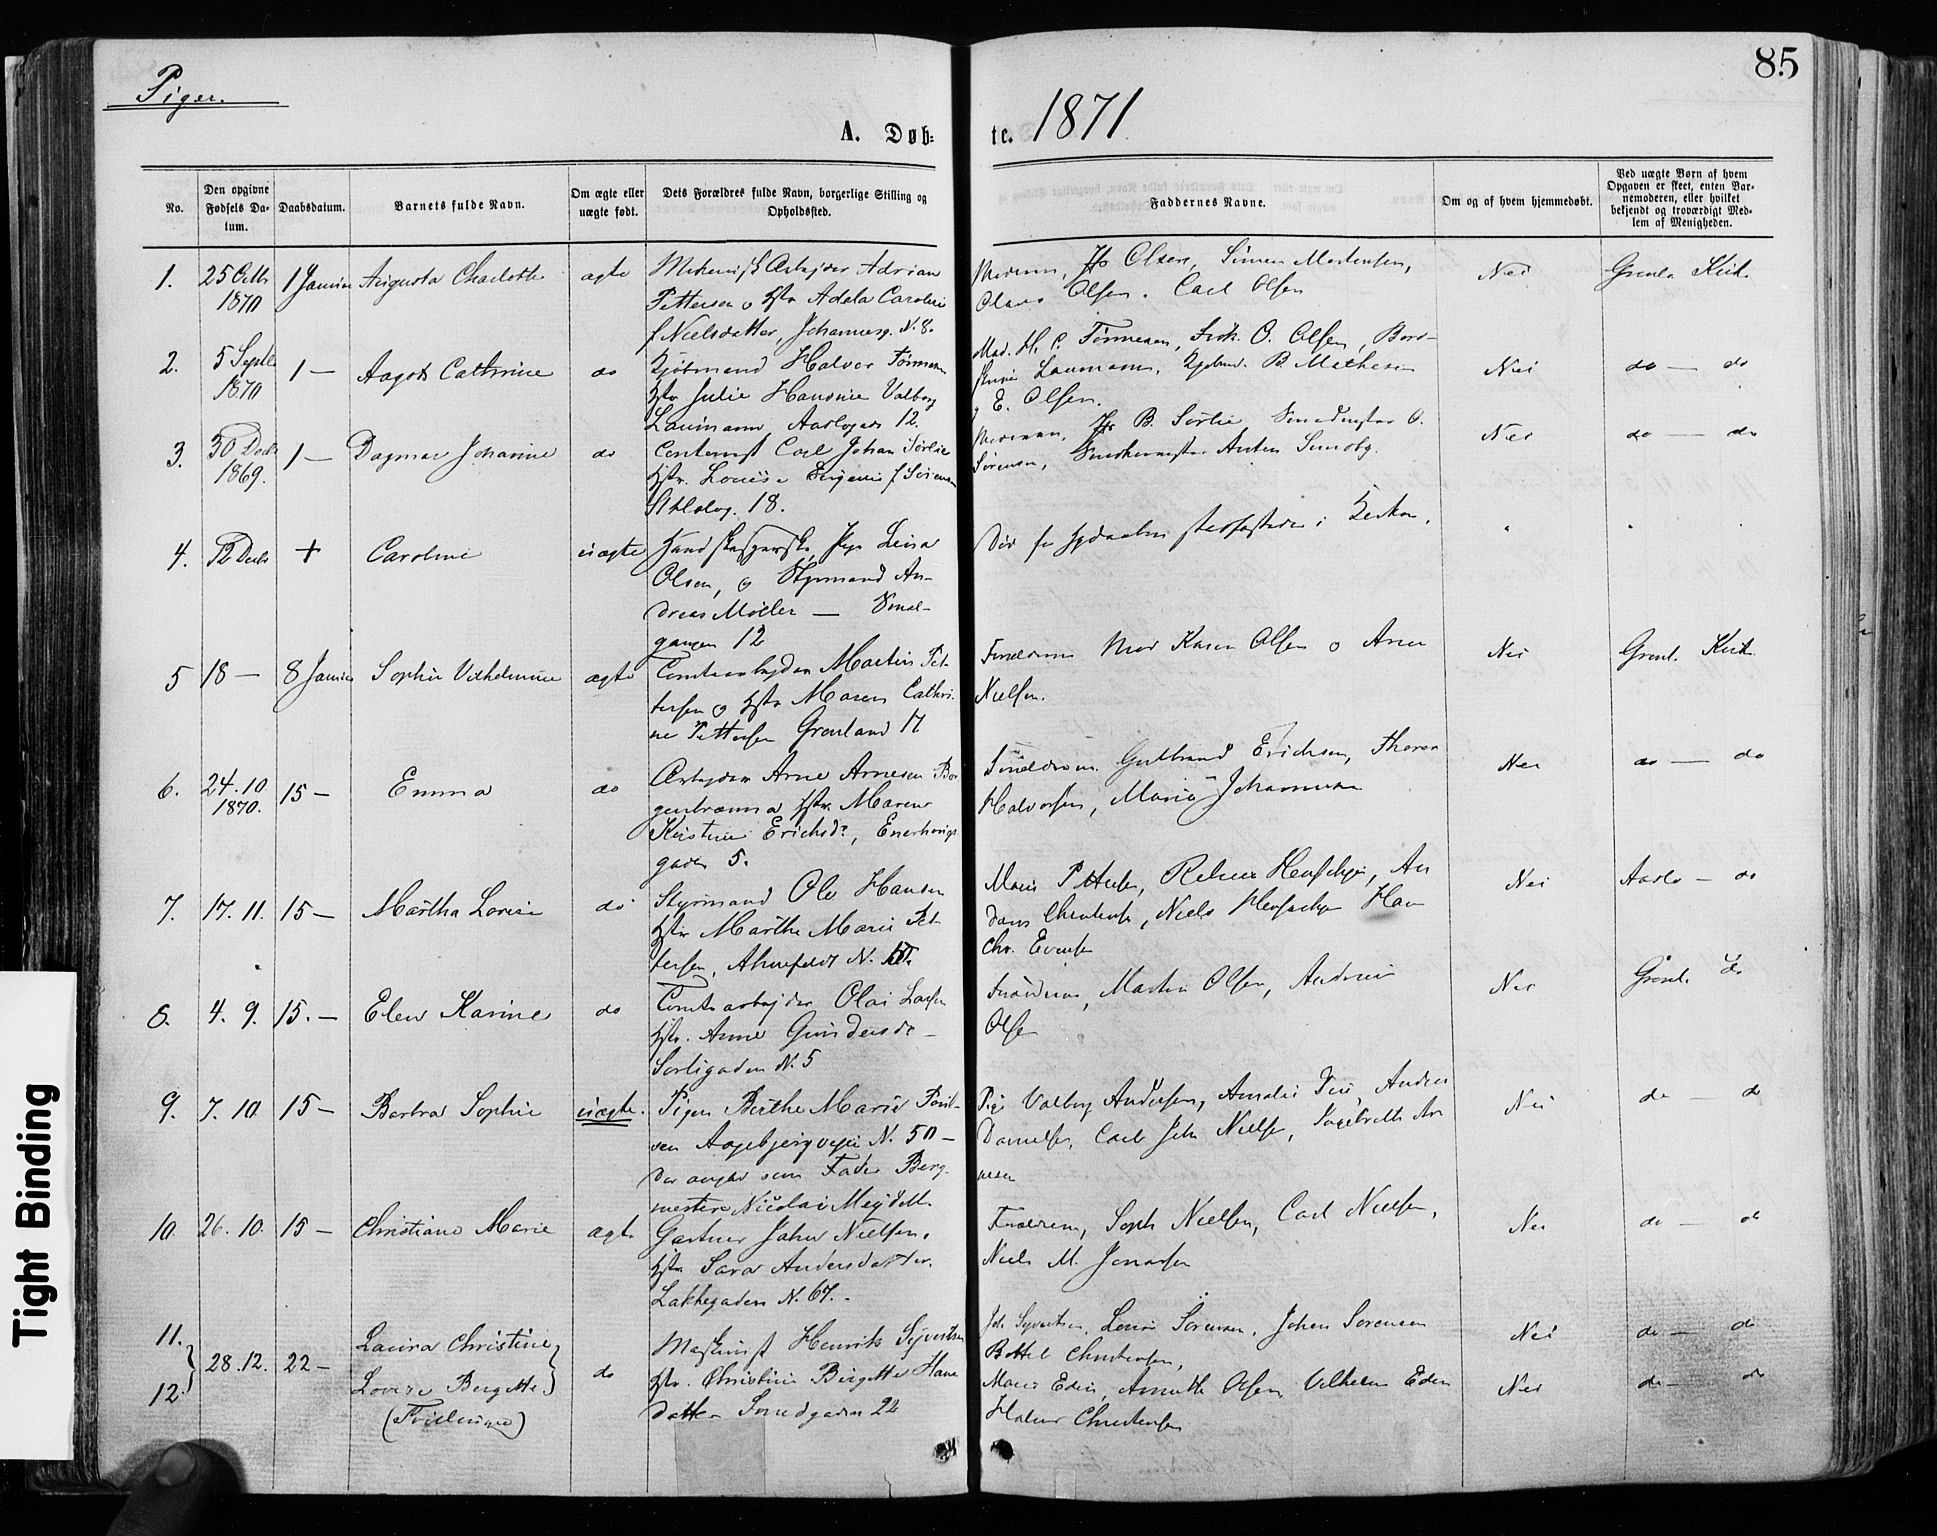 Piger.
85
A. Døb-
te. 1871.
No.
Den opgivne
Fødsels Da-
tum.
Daabsdatum.
Barnets fulde Navn.
Om ægte eller
uægte født.
Dets Forældres fulde Navn, borgerlige Stilling og
Opholdssted.
Faddernes Navne.
Om og af hvem hjemmedøbt.
Ved uægte Børn af hvem
Opgaven er skeet, enten Bar-
nemoderen, eller hvilket
bekjendt og troværdigt Med-
lem af Menigheden.
1.
25 Octb
1870
1 Januar
Augusta Charlotte
ægte
Mekanisk Arbejder Adrian
Pettersen o Hstr Adela Caroline
f Nielsdatter, Johannesg. N. 8.
Olsen, Simen Mortensen,
Olaus Olsen. Carl Olsen
Nei
Grønla Kirk.
2.
5 Septb
1870
1 —
Aagot Cathrine
do
Kjøbmand Halvor Tønnesen
Hstr Julie Hansine Valborg
Laumann Aaslogade 12.
Mad. H. C. Tønnesen, Frk. O. Olsen,
Laumann, B. Mathesen
E. Olsen.
Nei
do — do
3.
30 Decb
1869.
1 —
Dagmar Johanne
do
Contorist Carl Johan Sørlie
Hstr. Louise Eugenie f Sørensen
18.
B. Sørlie Smedmester O.
Sørensen, Snedkermester Anton Sundby.
Nei
do — do
4.
12 Decb
+
Caroline
uægte
Pige Lena
Olsen, og Styrmand An-
dreas Møller — Smal-
gangen 12
Død før Hjdaaben stadfæstedes i Kirken.
5
18 —
8 Januar
Sophie Vilhelmine
ægte
Comtoirbyder Martin Pet-
tersen og Hstr Maren Cathri-
ne Pettersen Grønland 17
Forældrene Mad Karen Olsen o Arne
Nielsen.
Nei
Grønl. Kirk.
6.
24. 10.
1870.
15 —
Emma
do
Arbejder Arne Arnesen Bor-
genbræmma Hstr. Maren
Kirstine Erichsdr, Enerhaugs-
gaden 5.
Forældrene. Gulbrand Erichsen, Thorer
Halvorsen, Maria Johannesen
Nei
do — do
7.
17. 11.
15 —
Martha Lovise
do
Styrmand Ole Hansen
Hstr Marthe Marie Pet-
tersen, Ahnefeldt N.
Maria Pettersen, An
Christensen, Niels Han
Chr. Evensen
Nei
Aaslo — do
8.
4. 9.
15. —
Elen Karine
do
Comtoirarbejder Olai Larsen
Hstr. Anne Gundersdr —
Sørligaden N. 5
Forældrene, Martin Olsen, Andrine
Olsen
Nei
Grønl. do
9.
7. 10.
15 —
Barbra Sophie
uægte.
Pigen Berthe Marie Poul-
sen Aagebjergvejen N. 50 —
der angav som Fader Berg-
mester Nicolai Mejdell.
Pige Valborg Andersen, Amalie Andreas
Danielsen, Carl Joh. Nielsen, Ingebreth Ar
nesen
Nei
do — do
10.
26. 10.
15 —
Christiane Marie
ægte
Gartner Johan Nielsen.
Hstr. Sara Andersdatter.
Lakkegaden N. 67. -
Forældrene, Soph. Nielsen, Carl Nielsen,
Niels M. Jonassen
Nei
do — do
11.
12
28. 12.
22 —
Laura Christine
Lovise Bergitte
(Tvillinger)
do
Maskinist Henrik Syvertsen
Hstr. Christine Birgitte Hans
datter Smedgaden 22
Joh. Syvertsen, Lovise Sørensen, Johan Sørensen
Bottel Christensen,
Maren Eden, Annette Olsen, Vilhelm Eden
Halvor Christensen
Nei
do — do
Nei
do — do
Tight Binding